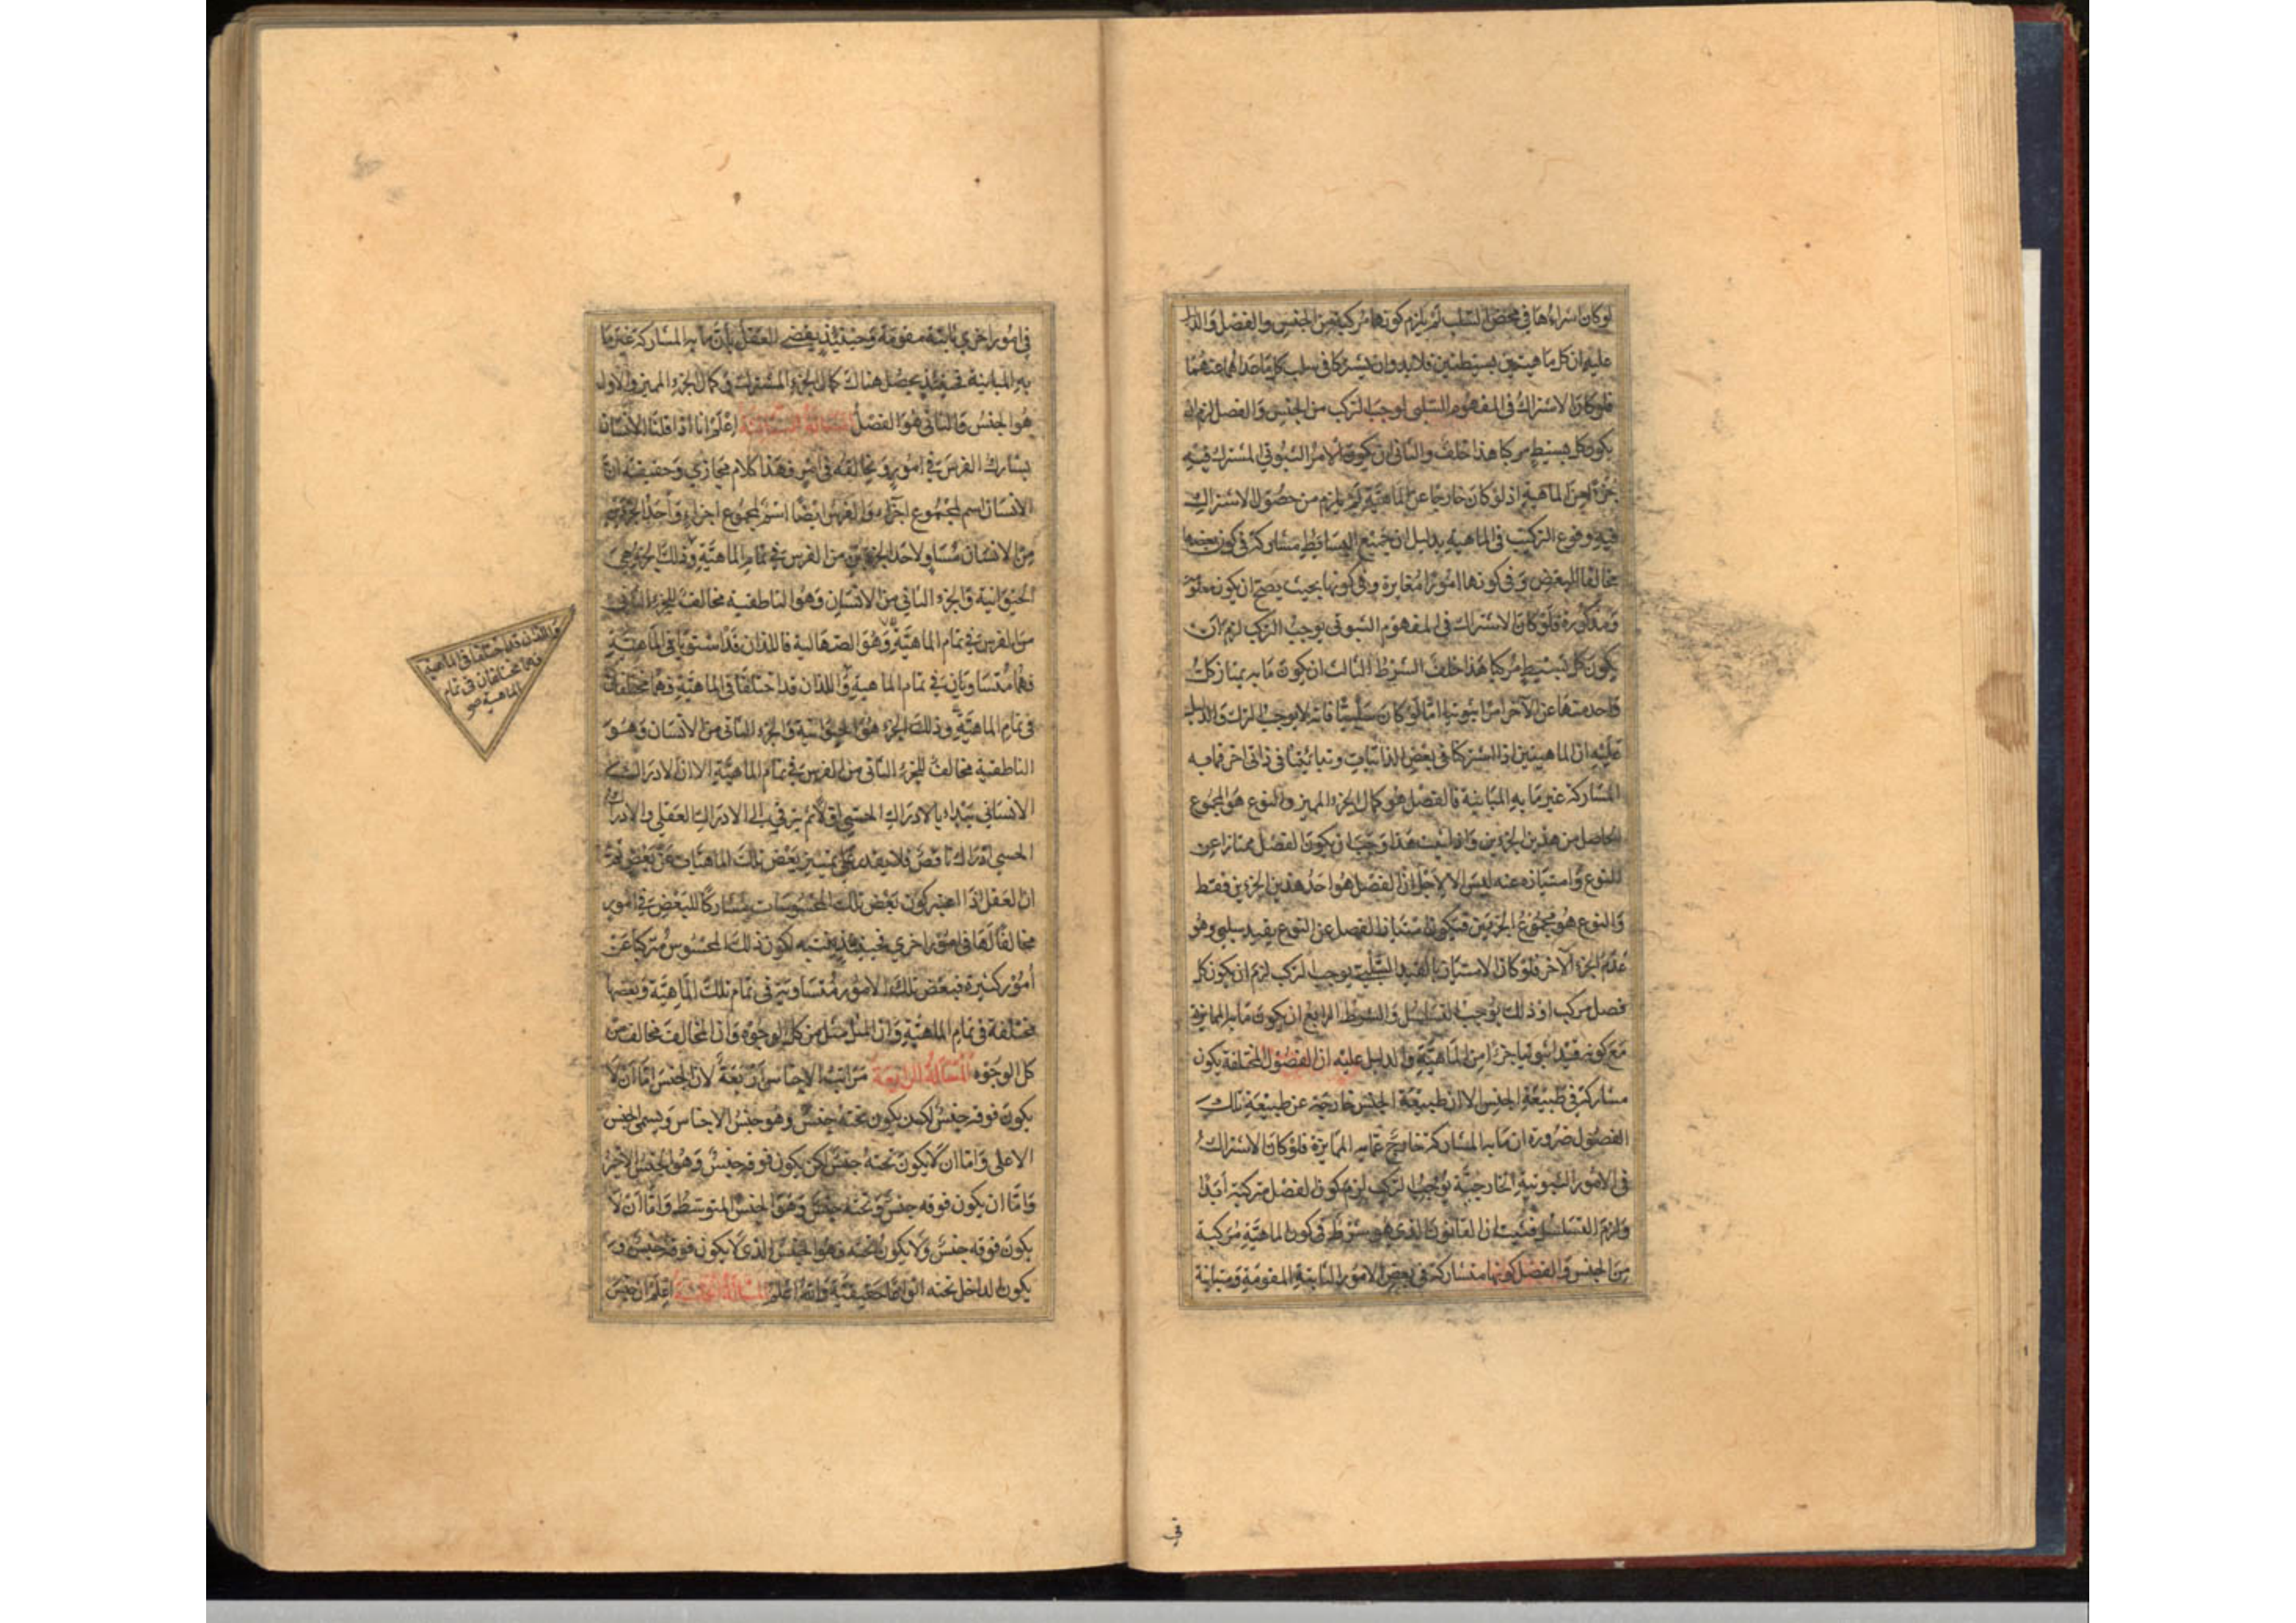 لوكان اشراءها في محض السلب لم يلزم كونها مركبة من الجنس والفصل والدليل
عليه ان كل ماهيتين بسيطتين فلا بد وان يشتركا في سلب كل ما عداهما عنهما
فلو كان الاشتراك في المفهوم السلبي يوجب التركب من الجنس والفصل لزم ان
يكون كل بسيط مركبا هذا خلف والثاني ان يكون الامر الثبوتي المشترك فيه
جزءا من الماهية اذ لو كان خارجا عن الماهية لم يلزم من حصول الاشتراك
فيه وقوع التركيب في الماهية بدليل ان جميع البسايط مشاركة في كون بعضها
مخالفا للبعض وفي كونها امورا مغايرة وفي كونها بحيث يصح ان يكون معلومة
ومذكورة فلو كان الاشتراك في المفهوم الثبوتي يوجب التركب لزم ان
يكون كل بسيط مركبا هذا خلف الشرط الثالث ان يكون ما به يمتاز كل
واحد منها عن الآخر امرا ثبوتيا اما لو كان سلبيا فانه لا يوجب التركب والدليل
عليه ان الماهيتين اذا اشتركتا في بعض الذاتيات وتباينتا في ذاتي اخر فما به
المشاركة غير ما به المباينة فالفصل هو كمال الجزء المميز والنوع هو المجموع
الحاصل من هذين الجزءين واذا ثبت هذا وجب ان يكون الفصل ممتازا عن
النوع وامتيازه عنه ليس الا لاجل ان الفصل هو احد هذين الجزءين فقط
والنوع هو مجموع الجزءين فيكون امتياز الفصل عن النوع بقيد سلبي وهو
عدم الجزء الآخر فلو كان الامتياز بالقيد السلبي يوجب التركب لزم ان يكون كل
فصل مركبا وذلك يوجب التسلسل والشرط الرابع ان يكون ما به الممايزة
مع كونه قيدا ثبوتيا جزءا من الماهية والدليل عليه ان الفصول المختلفة يكون
مشاركة في طبيعة الجنس الا ان طبيعة الجنس خارجة عن طبيعة تلك
الفصول ضرورة ان ما به المشاركة خارج عما به الممايزة فلو كان الاشتراك
في الامور الثبوتية الخارجية يوجب التركب لزم كون الفصل مركبة ابدا
ولزم التسلسل فثبت ان القانون الذي هو شرط في كون الماهية مركبة
من الجنس والفصل كونها متشاركة في بعض الامور الثابتة المقومة ومتباينة
في
في امور اخرى ثابتة مقومة وحينئذ يقضي العقل بان ما به المشاركة غير ما
به المباينة فحينئذ يحصل هناك كمال الجزء المشترك وكمال الجزء المميز والاول
هو الجنس والثاني هو الفصل المسئلة الثالثة اعلم انا اذا قلنا الانسان
يشارك الفرس في امور ويخالفه في امور فهذا كلام مجازي وحقيقته ان
الانسان اسم لمجموع اجزاء والفرس ايضا اسم لمجموع اجزاء واحد الجزءين
من الانسان مساو لاحد الجزءين من الفرس في تمام الماهية وذلك الجزء هي
الحيوانية والجزء الثاني من الانسان وهو الناطقية مخالف للجزء الثاني
من الفرس في تمام الماهية وهو الصهالية فاللذان قد استويا في الماهية
فهما متساويان في تمام الماهية واللذان قد اختلفا في الماهية فهما مختلفان
في تمام الماهية وذلك الجزء هو الحيوانية والجزء الثاني من الانسان وهو
الناطقية مخالف للجزء الثاني من الفرس في تمام الماهية الا ان الادراك
الانساني يبتدا بالادراك الحسي اولا ثم يترقى الى الادراك العقلي والادراك
الحسي ادراك ناقص فلا يقدر على تمييز بعض تلك الماهيات عن بعض ثم
ان العقل اذا اعتبر كون بعض تلك المحسوسات مشاركا للبعض في امور
مخالفا لها في امور اخرى فحينئذ يتنبه لكون ذلك المحسوس مركبا عن
امور كثيرة فبعض تلك الامور متساوية في تمام تلك الماهية وبعضها
مختلفة في تمام الماهية وان المثل مثل من كل الوجوه وان المخالف مخالف من
كل الوجوه المسئلة الرابعة مراتب الاجناس اربعة لان الجنس اما ان لا
يكون فوقه جنس لكن يكون تحته جنس وهو جنس الاجناس ويسمى الجنس
الاعلى واما ان لا يكون تحته جنس لكن يكون فوقه جنس وهو الجنس الاخير
واما ان يكون فوقه جنس وتحته جنس وهو الجنس المتوسط واما ان لا
يكون فوقه جنس ولا يكون تحته وهو الجنس الذي لا يكون فوقه جنس و
يكون الداخل تحته انواعا حقيقية والله اعلم المسئلة الخامسة اعلم ان جنس
واللذان قد اختلفا في الماهية
فهما مختلفان في تمام
الماهية صح